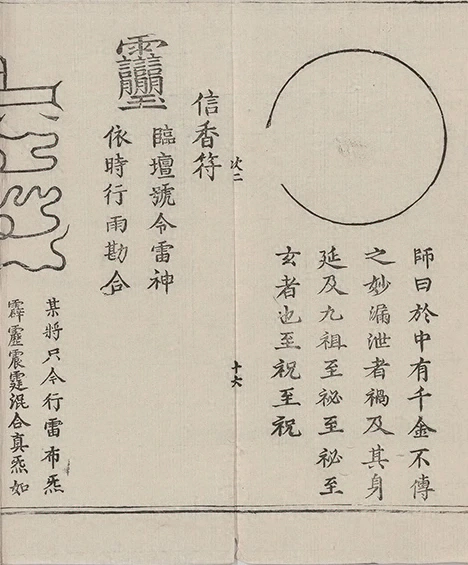 師曰於中有千金不傳
之妙漏泄者禍及其身
延及九祖至祕至祕至
玄者也至祝至祝
次二
十六
信香符
臨壇號令雷神
依時行雨勘合
某將只今行雷布炁
霹靂震霆混合真炁如